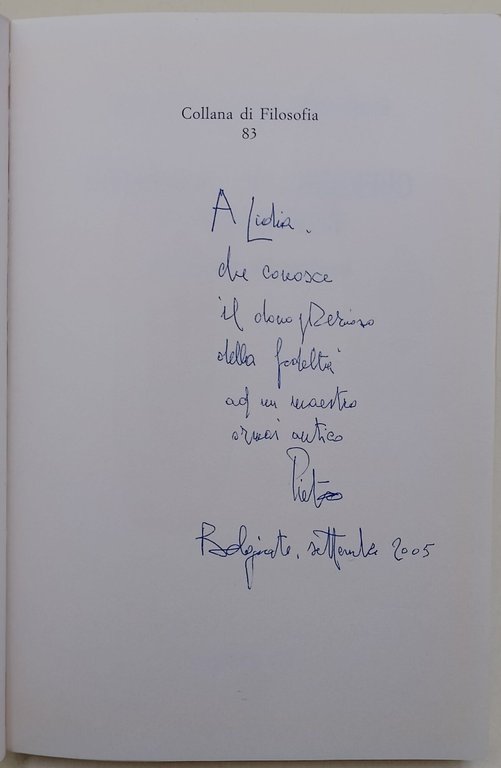 Collana di Filosofia
83
A Lidia,
che conosce
il dono prezioso
della fedeltà
ad un maestro
ormai antico
Pietro
settembre 2005